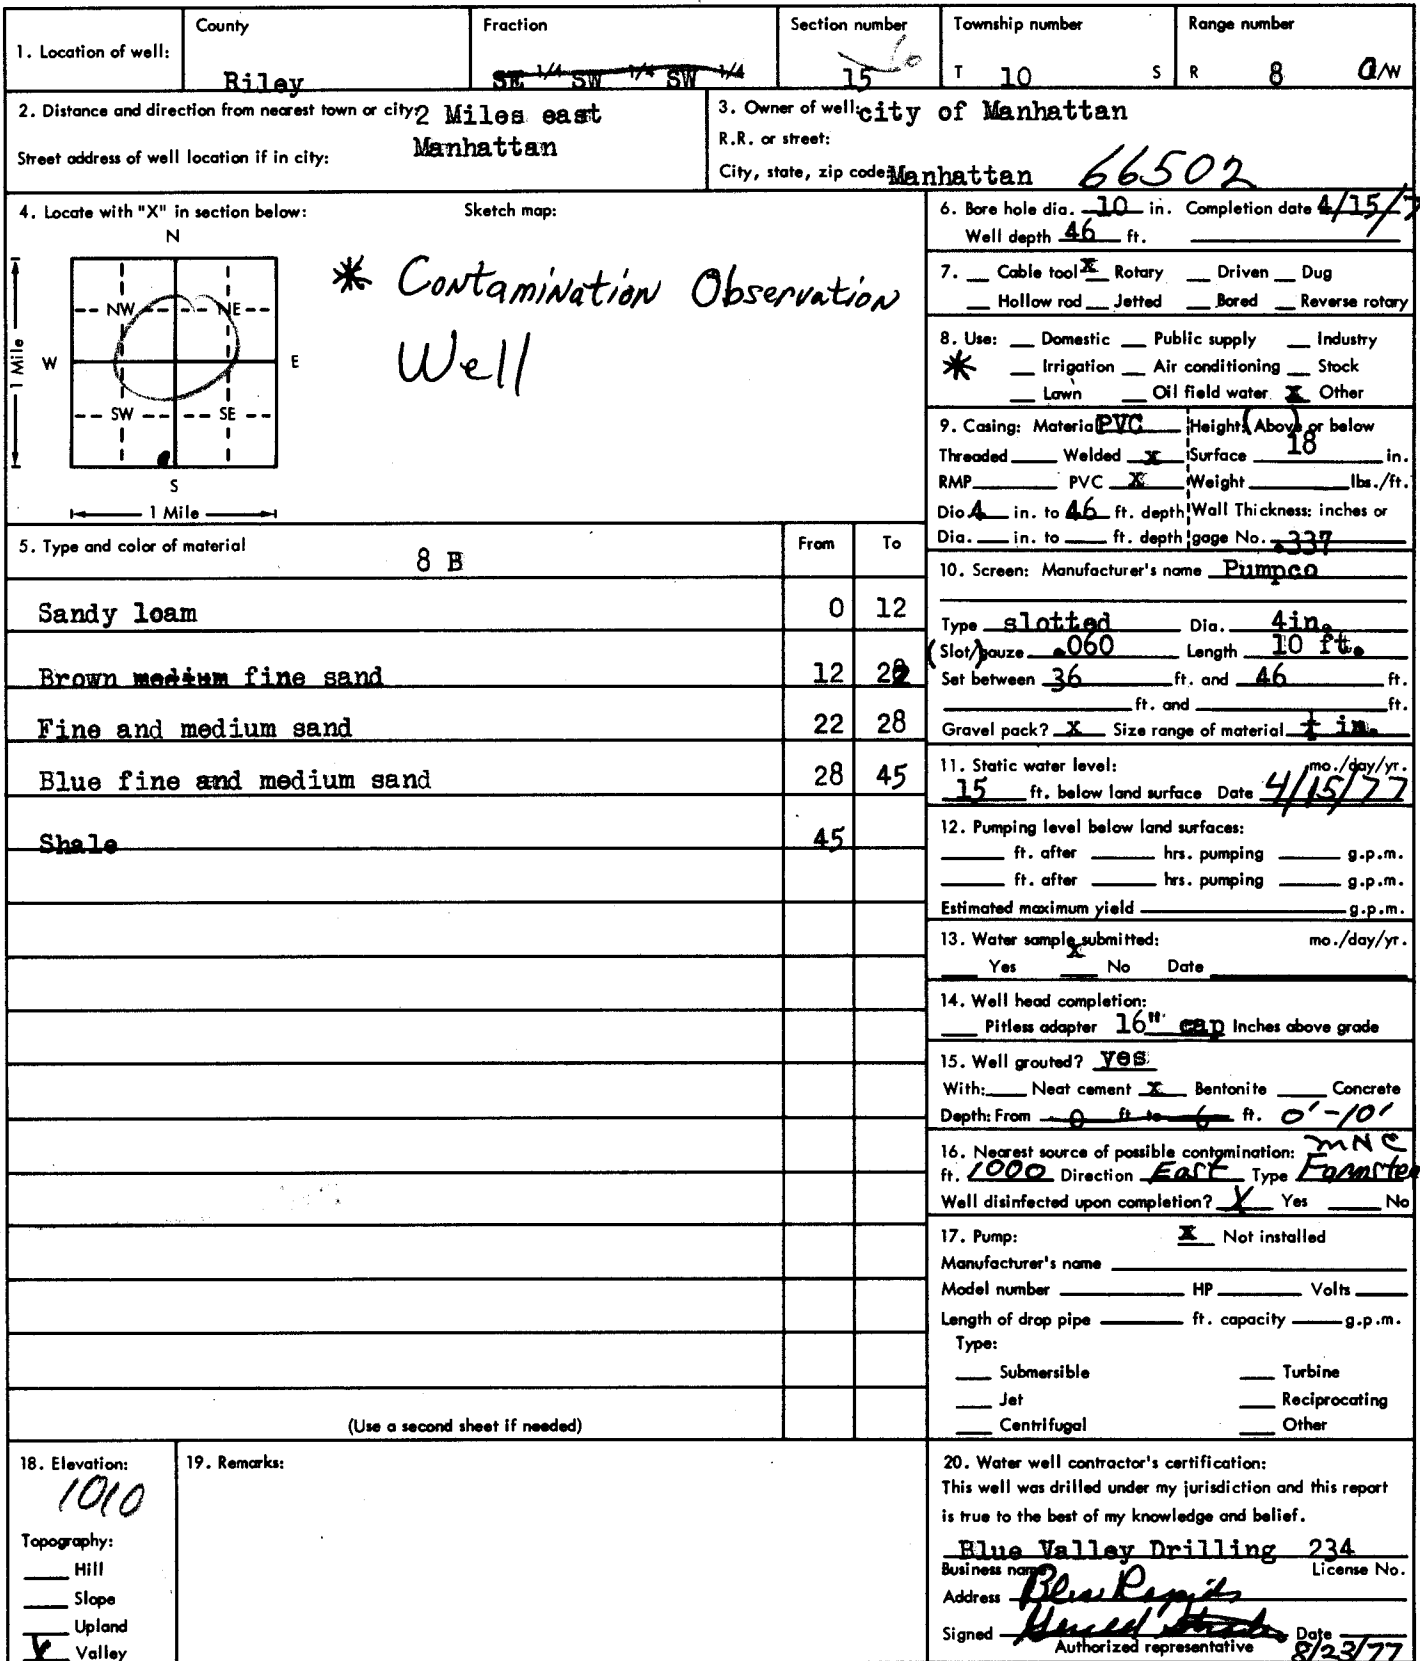 1. Location of well:
County
Riley
Fraction
SE 1/4 SW 1/4 SW 1/4
Section number
15
Township number
T 10 S
Range number
R 8 /W
2. Distance and direction from nearest town or city: 2 Miles east
Manhattan
Street address of well location if in city:
3. Owner of well: city of Manhattan
R.R. or street:
City, state, zip code: Manhattan 66502
4. Locate with "X" in section below:
Sketch map:
N
NW NE
W E
SW SE
S
1 Mile
1 Mile
* Contamination Observation
Well
5. Type and color of material
8 B
From To
Sandy loam 0 12
Brown medium fine sand 12 22
Fine and medium sand 22 28
Blue fine and medium sand 28 45
Shale 45
(Use a second sheet if needed)
6. Bore hole dia. 10 in. Completion date 4/15/7
Well depth 46 ft.
7. Cable tool X Rotary Driven Dug
Hollow rod Jetted Bored Reverse rotary
8. Use: Domestic Public supply Industry
* Irrigation Air conditioning Stock
Lawn Oil field water X Other
9. Casing: Material PVC Height: (Above) or below
Threaded Welded X Surface 18 in.
RMP PVC X Weight lbs./ft.
Dia 4 in. to 46 ft. depth Wall Thickness: inches or
Dia. in. to ft. depth gage No. .337
10. Screen: Manufacturer's name Pumpco
Type slotted Dia. 4in.
(Slot/)gauze .060 Length 10 ft.
Set between 36 ft. and 46 ft.
ft. and ft.
Gravel pack? X Size range of material in.
11. Static water level: mo./day/yr.
15 ft. below land surface Date 4/15/77
12. Pumping level below land surfaces:
ft. after hrs. pumping g.p.m.
ft. after hrs. pumping g.p.m.
Estimated maximum yield g.p.m.
13. Water sample submitted: mo./day/yr.
Yes X No Date
14. Well head completion:
Pitless adapter 16" cap Inches above grade
15. Well grouted? yes
With: Neat cement X Bentonite Concrete
Depth: From 0 ft to 6 ft. 0'-10'
16. Nearest source of possible contamination: MNC
ft. 1000 Direction East Type Farmstea
Well disinfected upon completion? X Yes No
17. Pump: X Not installed
Manufacturer's name
Model number HP Volts
Length of drop pipe ft. capacity g.p.m.
Type:
Submersible Turbine
Jet Reciprocating
Centrifugal Other
18. Elevation:
1010
Topography:
Hill
Slope
Upland
X Valley
19. Remarks:
20. Water well contractor's certification:
This well was drilled under my jurisdiction and this report
is true to the best of my knowledge and belief.
Blue Valley Drilling 234
Business name License No.
Address Blue Rapids
Signed Date 8/23/77
Authorized representative